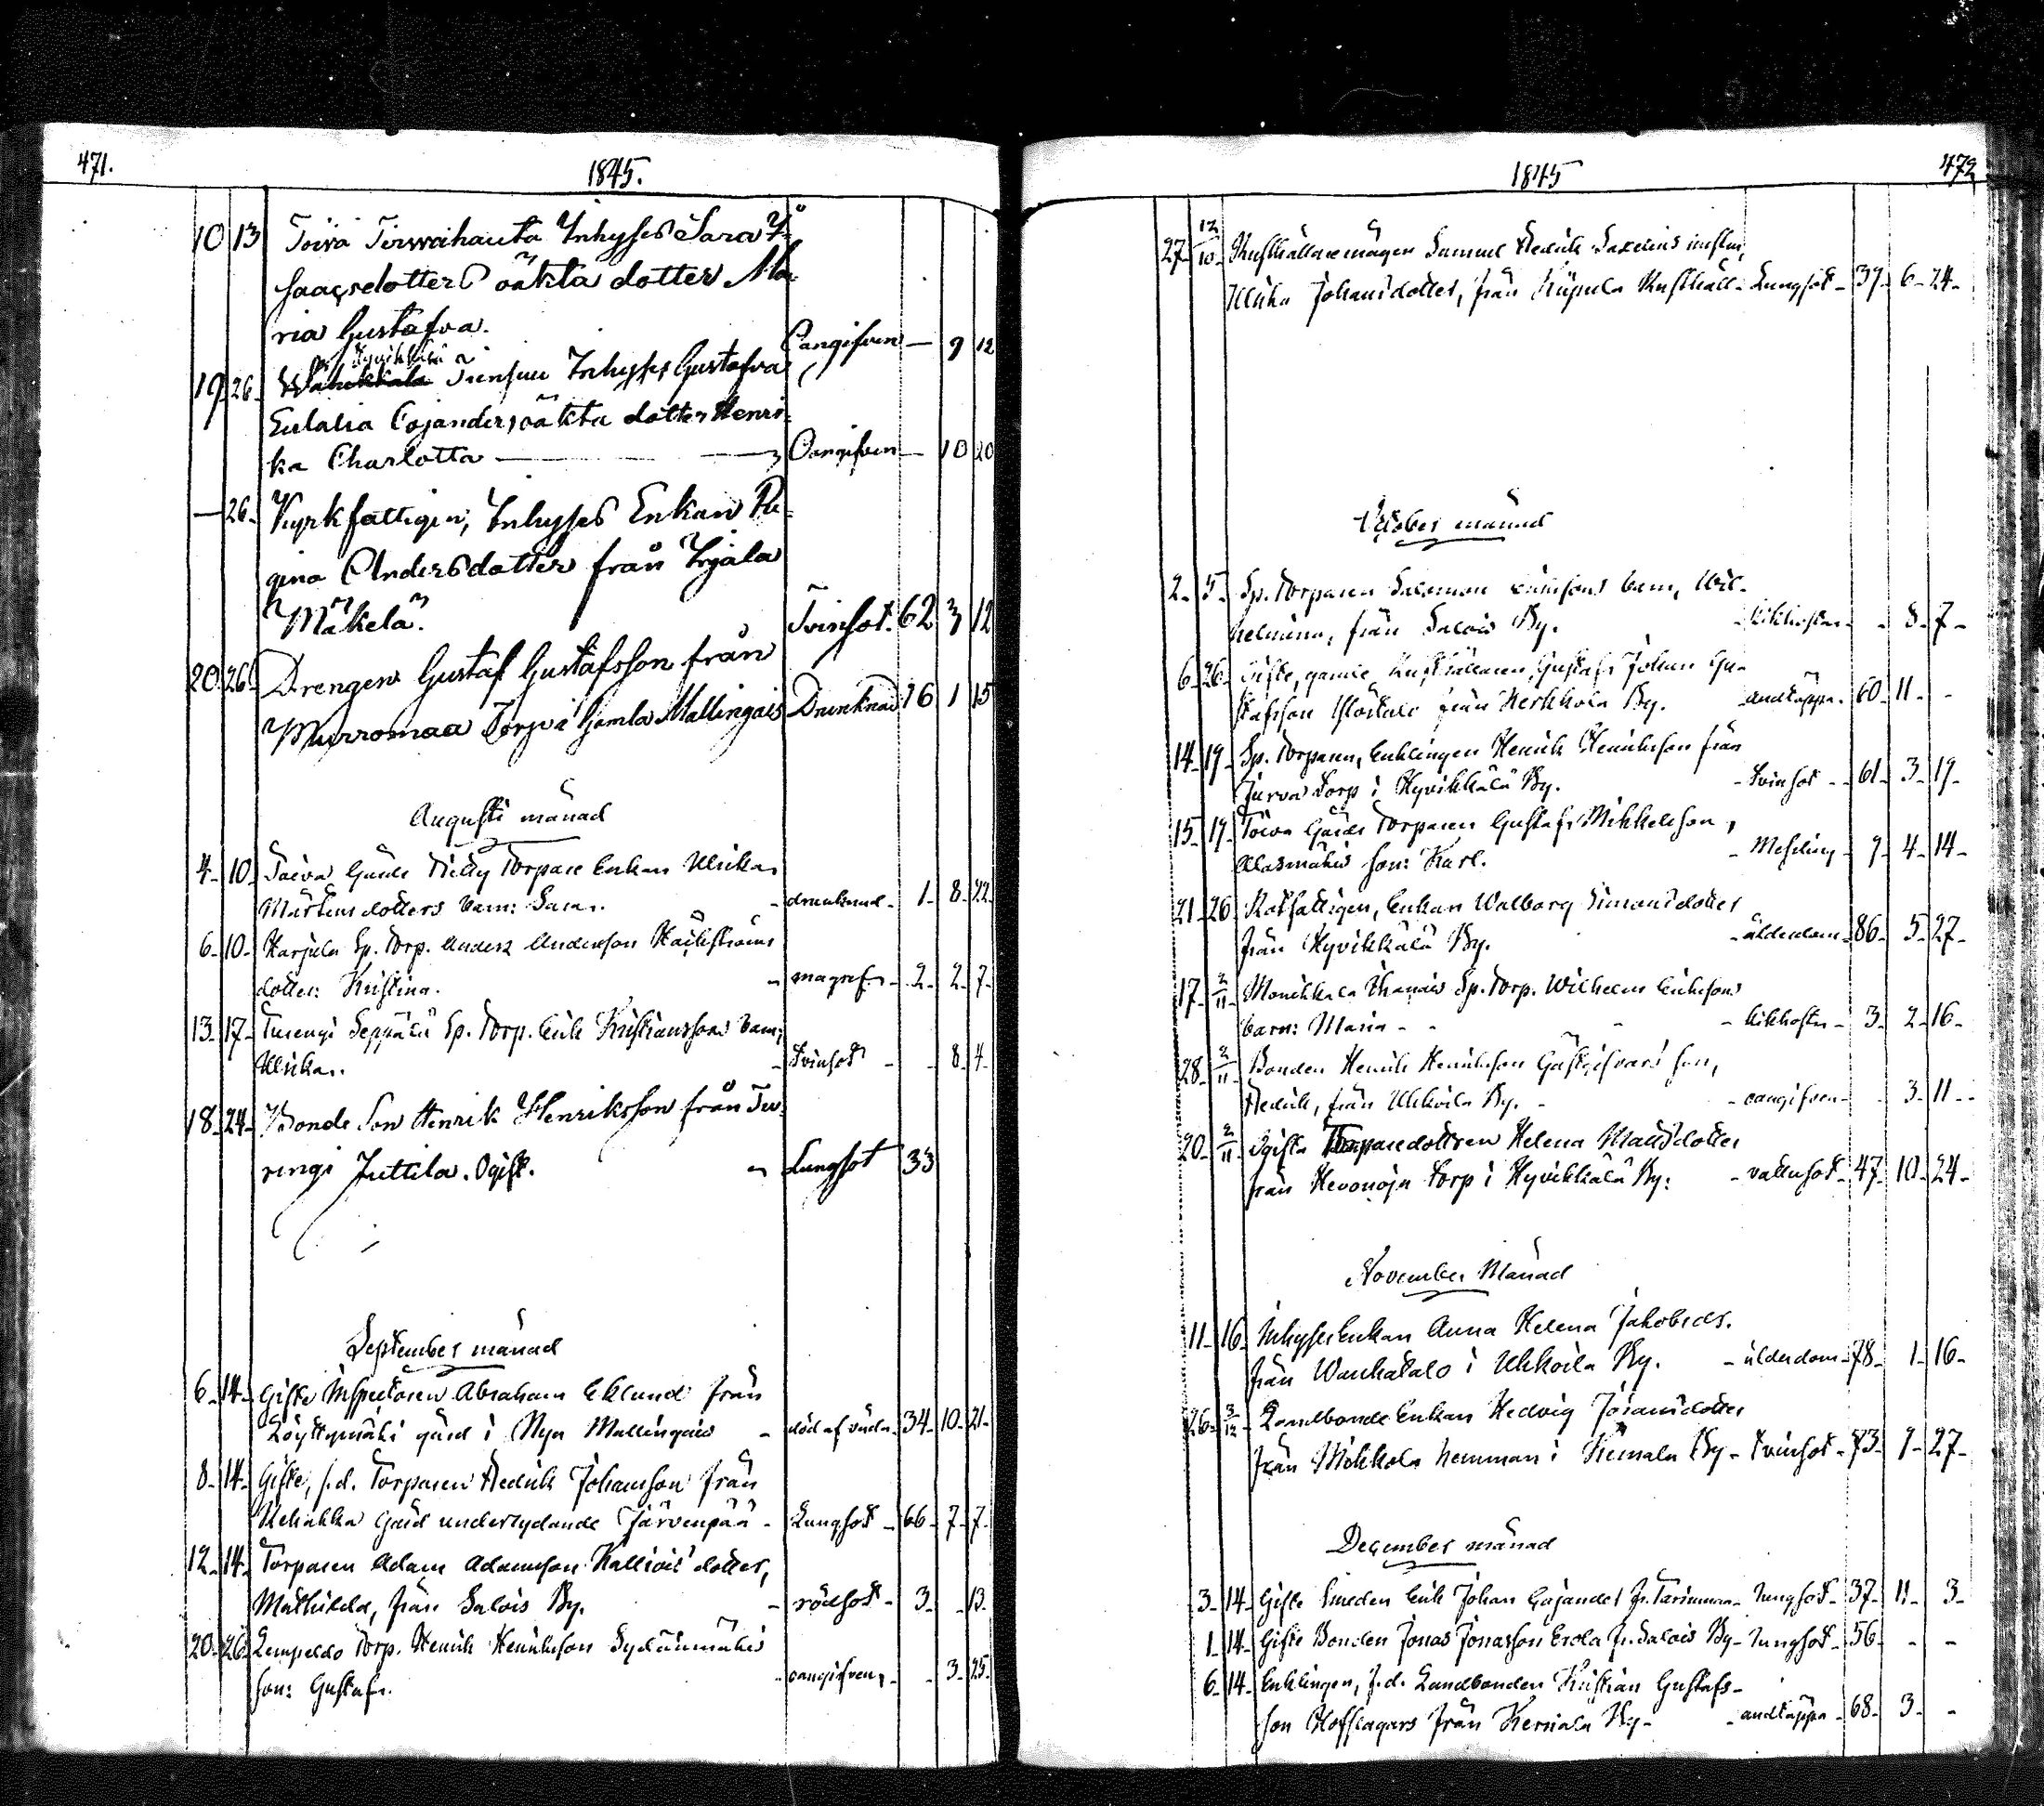 471.
1845.
10 13 Toiva Tervaihauta Inhyses Sara I-
saacsdotters oäkta dotter Ma-
ria Gustafva. Oangifven — 9 12
19 26. Hyvikkälä Inhyses Gustafva
Eulalia Cajanders oäkta dotter Henri-
ka Charlotta — Oangifven — 10 20
— 26. Kyrkfattigen, Inhyses Enkan Re-
gina Andersdotter från Irjala
Mäkelä. Tvinsot. 62 3 12
20 26 Drengen Gustaf Gustafsson från
Murromaa Torp i Gamla Mallingais Drunknad 16 1 15
Augusti månad
4. 10. Toiva Gårds Torpare Enkan Ulrika
Mårtensdotters barn: Sara. - drunknad - 1. 8. 22.
6. 10. Harjula Sp. Torp. Anders Andersson
dotter: Kristina. - magref - 2. 2. 7.
13. 17. Turengi Seppälä Sp. Torp. Erik Kristianssons barn;
Ulrika. - Tvinsot - - 8. 4.
18. 24. Bonde Son Henrik Henriksson från Tu-
rengi Juttila. Ogift. Lungsot 33
September månad
6. 14. Gifte Inspectoren Abraham Eklund från
Löyttymäki gård i Nya Mallingais - död af våda - 34. 10. 21.
8. 14. Gifte, f.d. Torparen Fredrik Johansson från
gård underlydande Järvenpää - Lungsot - 66. 7. 7.
12. 14. Torparen Adam Adamsson Kalliois dotter,
Mathilda, från Salois By. - rödsot - 3. - 13.
20. 26. Torp. Henrik Henriksson Sydänmäkis
son: Gustaf. - oangifven, - - 3. 25.
1845
472
27. 12/10. Rusthållaremågen Samuel Fredrik hustru,
Ulrika Johansdotter, från Rusthåll - Lungsot - 37. 6. 24.
October månad
2. 5. Sp. Torparen Salomon barn, Wil-
helmina, från Salois By. - kikhosta - - 8. 7.
6. 26. Gifte, gamle Rusthållaren Gustaf Johan Gu-
stafsson från Herkkola By. andtäppa. 60. 11. -
14. 19. Sp. Torparen, Enklingen Henrik Henriksson från
Jurva Torp i Hyvikkälä By. - Tvinsot - 61. 3. 19.
15. 19. Toiva Gårds Torparen Gustaf Mikkelsson,
Alasmäkis son: Karl. - Messling - 9. 4. 14.
21. 26 Rotfattigen, Enkan Walborg Simonsdotter
från Hyvikkälä By. - ålderdom - 86. 5. 27.
17. 2/11. Monikkala Sp. Torp. Wilhelm Erikssons
barn: Maria - - - kikhosta - 3. 2. 16.
28. 2/11. Bonden Henrik Henriksson Gästgifvars son,
Fredrik, från Uhkoila By. - - oangifven - - 3. 11.
20. 2/11. Ogifta Torparedottren Helena Mattsdotter
från Hevonoja Torp i Hyvikkälä By. - vattusot - 47. 10. 24.
November Månad
11. 16. Inhyses Enkan Anna Helena Jakobsds.
från Wanhatalo i Uhkoila By. - ålderdom - 78. 1. 16.
26. 3/12. Landbonde Enkan Hedvig Göransdotter
från Mikkola hemman i Kernala By - Tvinsot - 73. 9. 27.
December månad
3. 14. Gifte Smeden Erik Johan Cajander fr. - lungsot - 37. 11. 3.
1. 14. Gifte Bonden Jonas Jonasson Erola fr. Salois By - lungsot - 56. - -
6. 14. Enklingen, f.d. Landbonden Kristian Gustafs-
son Hofslagars från Kernala By - - andtäppa - 68. 3. -